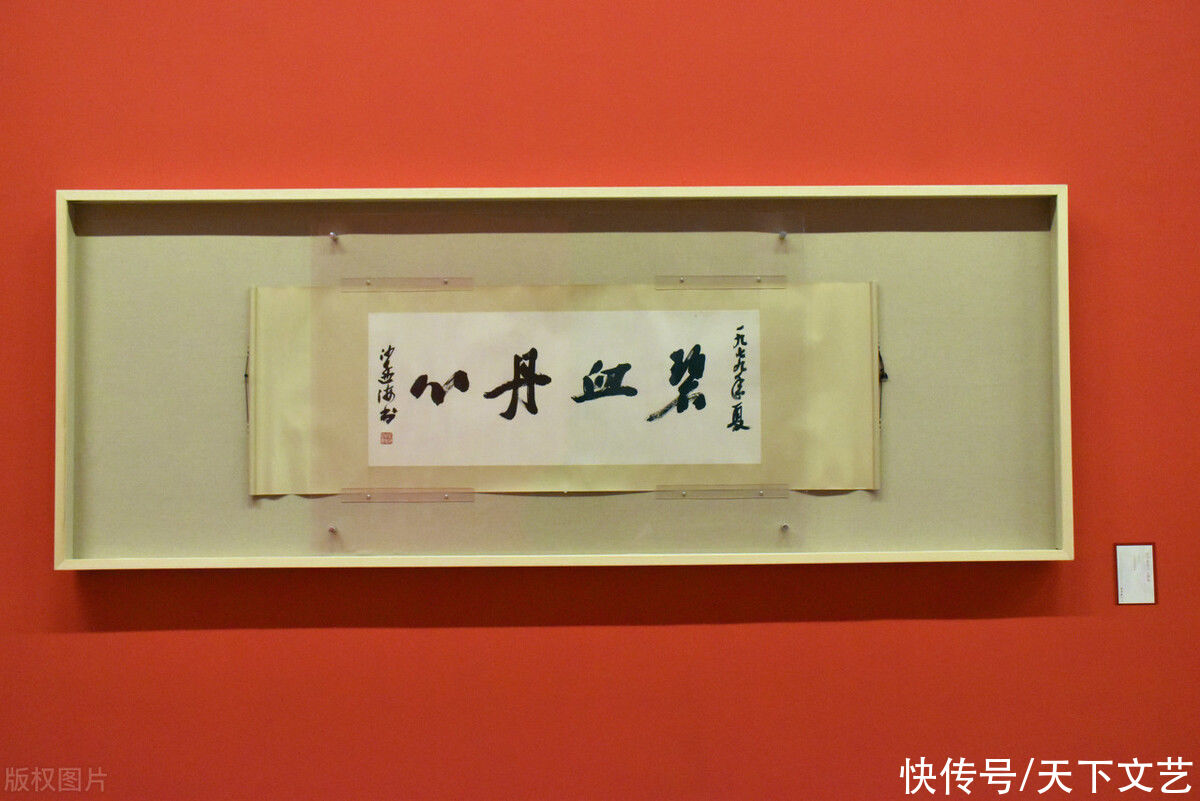 一九七九年夏
碧血丹心
沙孟海书
版权图片
快传号/天下文艺